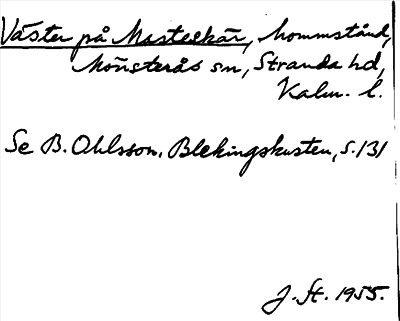 Väster på Masteskär, hommstånd,
Mönsterås sn, Stranda hd,
Kalm. l.
Se B. Ohlsson, Blekingskusten, s. 131
J. St. 1955.